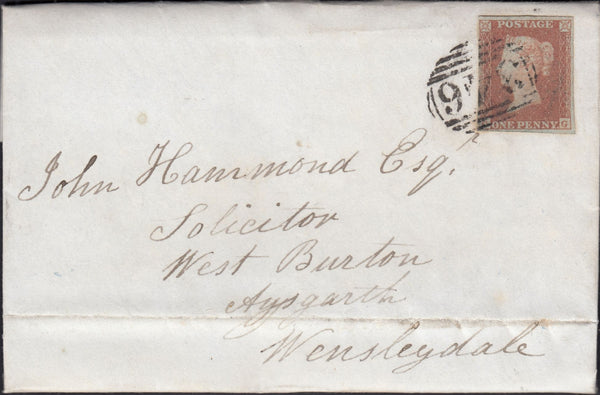 POSTAGE
ONE PENNY G
John Hammond Esqr
Solicitor
West Burton
Aysgarth
Wensleydale